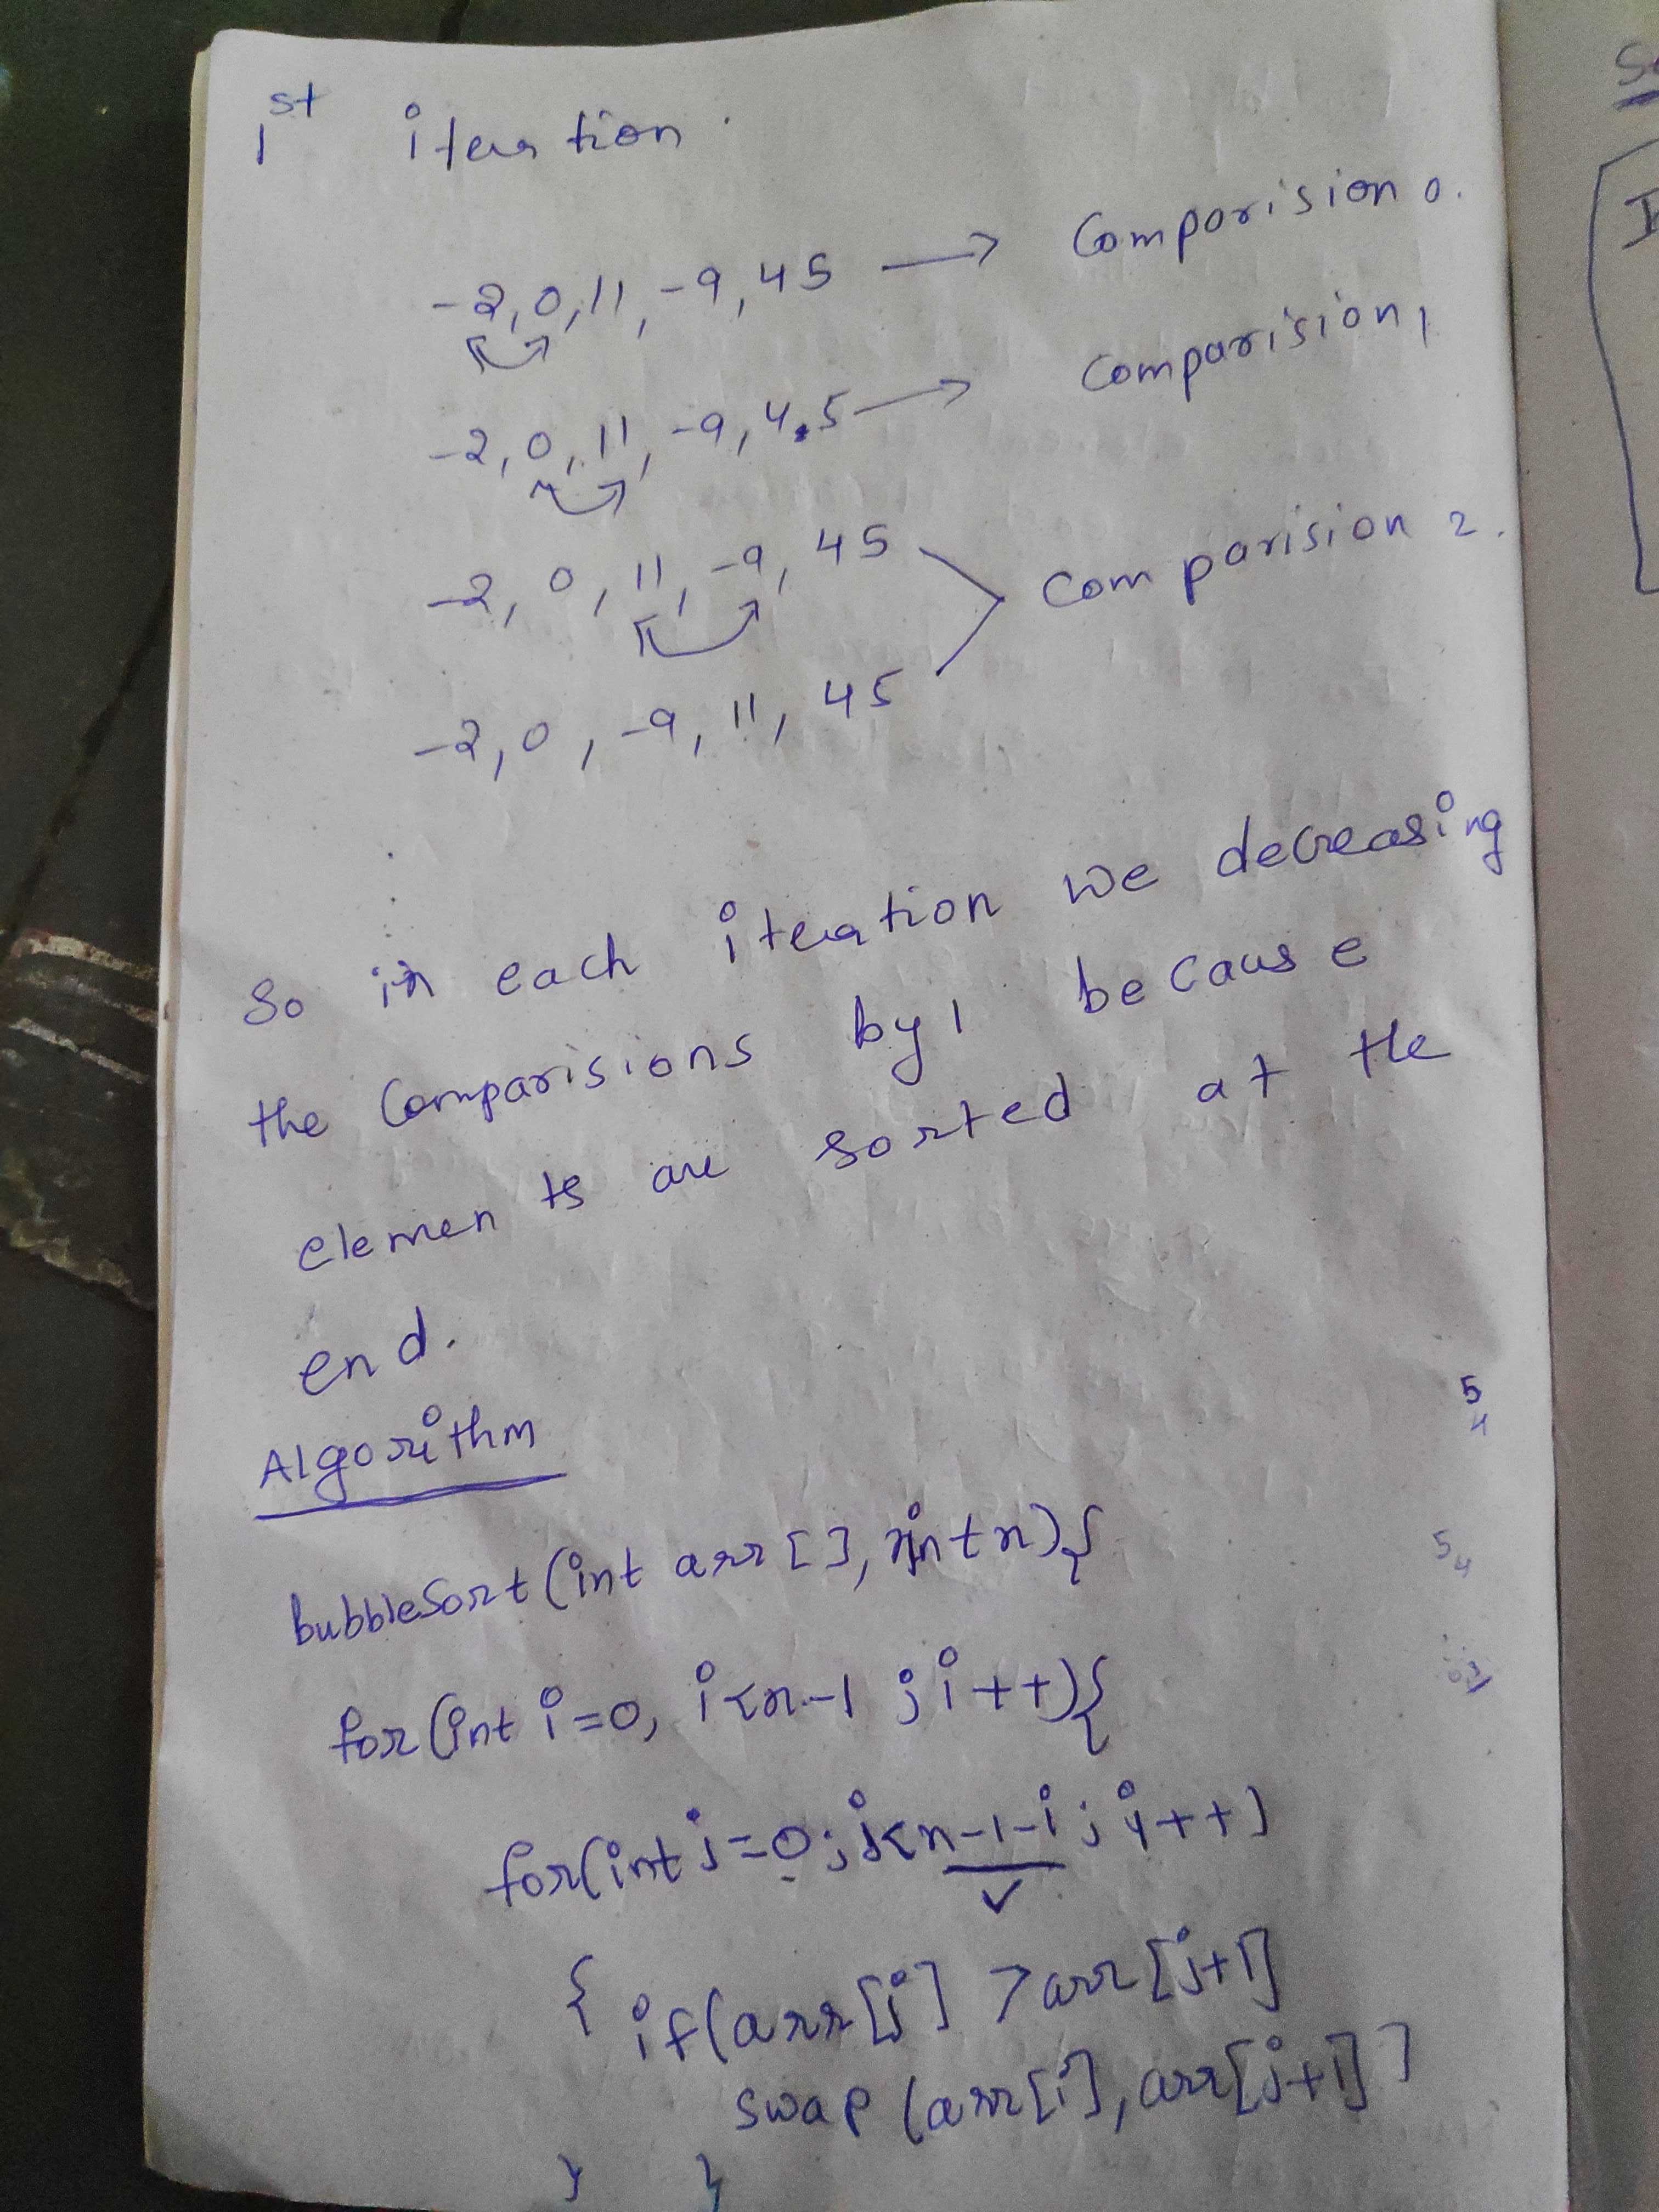 1st iteration.
-2,0,11,-9,45 → Comparision 0.
-2,0,11,-9,4.5 → Comparision 1
-2,0,11,-9,45
Comparision 2.
-2,0,-9,11,45
So in each iteration we decreasing
the Comparisions by 1 because
elements are sorted at the
end.
Algorithm
bubbleSort(int arr[], int n){
for(int i=0, i<n-1 ; i++){
for(int j=0; j<n-1-i; j++)
{ if(arr[j] > arr[j+1]
swap (arr[i], arr[j+1])
} }
5
4
5 4
S
I